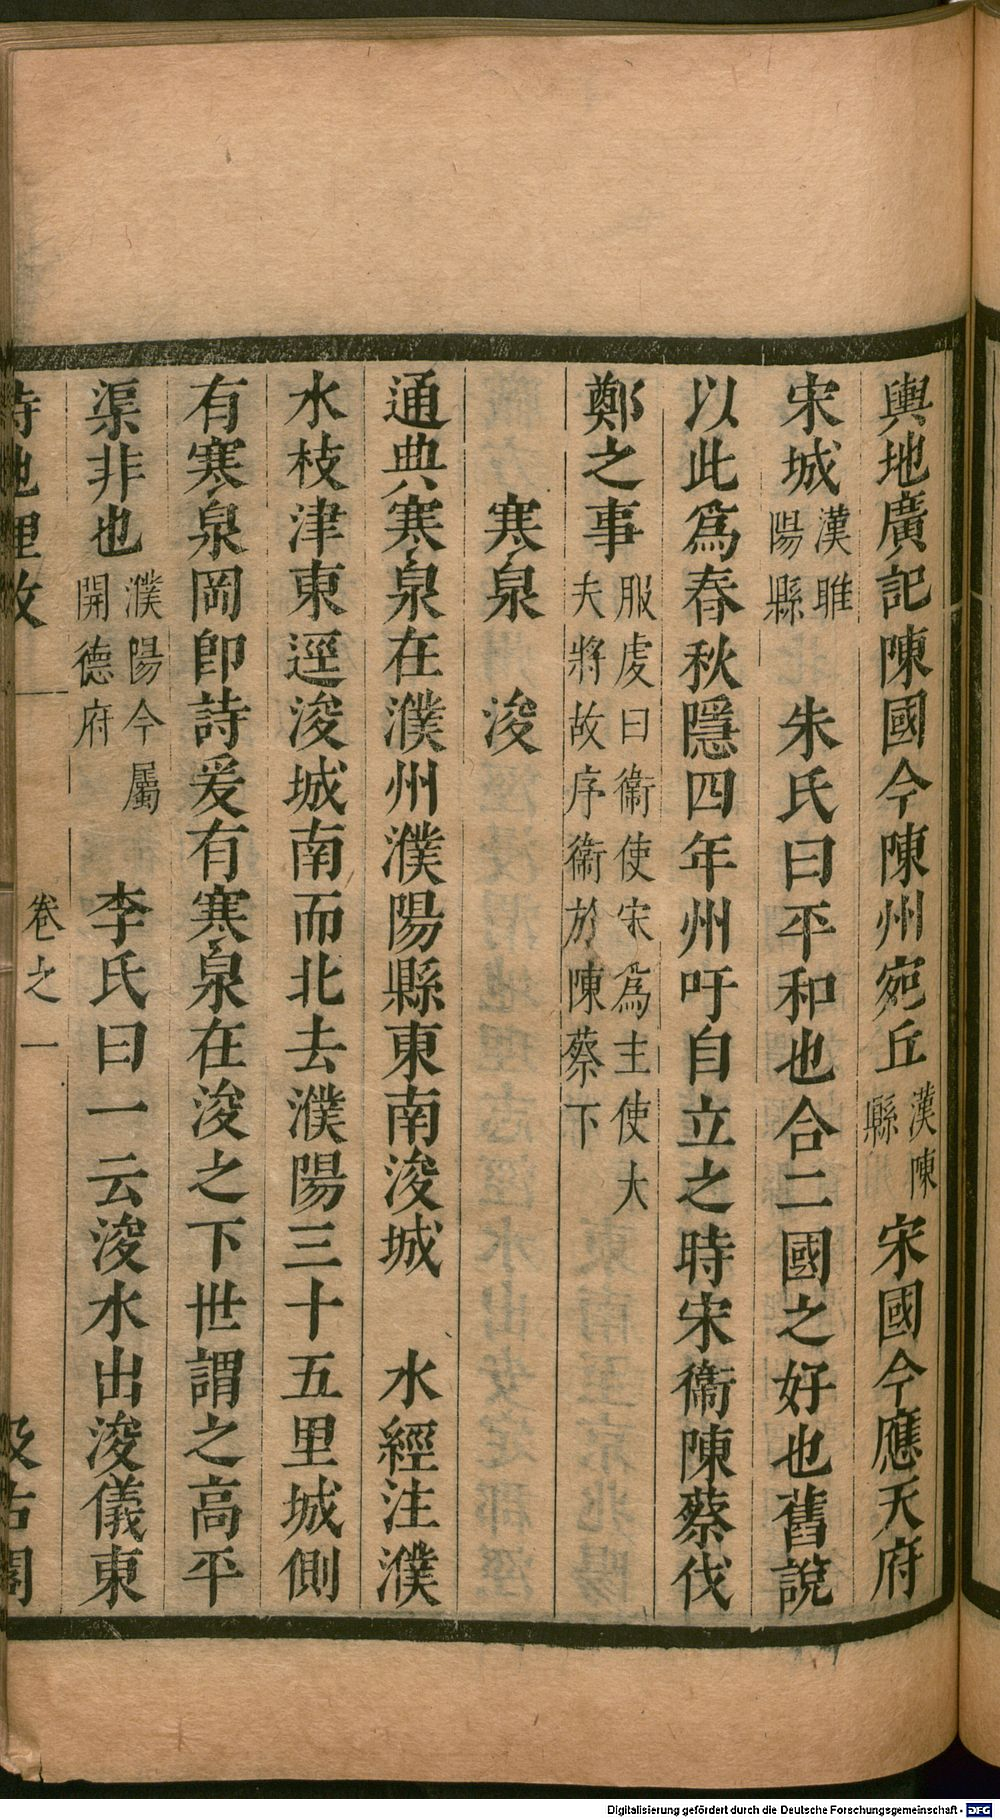 輿地廣記陳國今陳州宛丘漢陳縣 宋國今應天府
宋城漢睢陽縣 朱氏曰平和也合二國之好也舊說
以此爲春秋隱四年州吁自立之時宋衞陳蔡伐
鄭之事服虔曰衞使宋爲主使大夫將故序衞於陳蔡下
寒泉 浚
通典寒泉在濮州濮陽縣東南浚城 水經注濮
水枝津東逕浚城南而北去濮陽三十五里城側
有寒泉岡卽詩爰有寒泉在浚之下世謂之高平
渠非也濮陽今屬開德府 李氏曰一云浚水出浚儀東
詩地理攷 卷之一 汲古閣
Digitalisierung gefördert durch die Deutsche Forschungsgemeinschaft - DFG